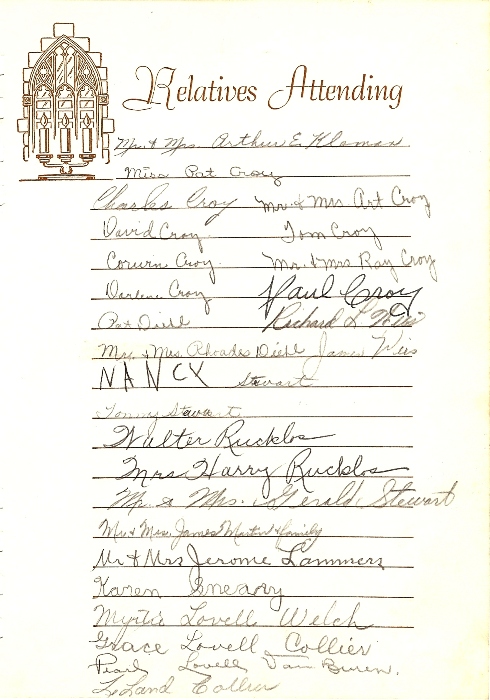 Relatives Attending
Mr. & Mrs. Arthur E. Klaman
Miss Pat Croy
Charles Croy Mr. & Mrs Art Croy
David Croy Tom Croy
Corwin Croy Mr. & Mrs Ray Croy
Darlene Croy Paul Croy
Pat Diehl Richard L
Mr. & Mrs. Rhoades Diehl
NANCY Stewart
Tommy Stewart
Walter Rucklos
Mrs Harry Rucklos
Mr. & Mrs. Gerald Stewart
Mr. & Mrs. James Martin & family
Mr & Mrs Jerome Lammers
Karen Sneary
Myrtie Lovell Welch
Grace Lovell Collier
Pearl Lovell Van Buren.
LeLand Collier